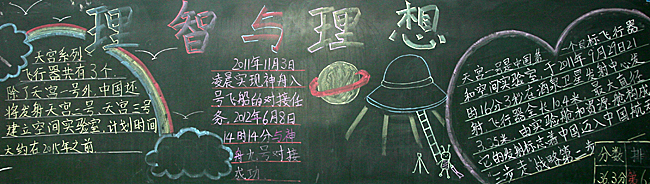 理智与理想
天宫系列
飞行器共有3个.
除了天宫一号外,中国还
将发射天宫二号.天宫三号
建立空间实验室,计划时间
大约在2015年之前.
2011年11月3日
凌晨实现神舟八
号飞船的对接任
务.2012年6月8日
14时14分与神
舟九号对接
成功.
天宫一号是中国第一个目标飞行器
和空间实验室,于2011年9月29日21
时16分3秒在酒泉卫星发射中心发
射.飞行器全长10.4米.最大直径
3.35米,由实验舱和资源舱构成
它的发射标志着中国迈入中国航天
"三步走"战略第二步
分数 排
363分 第6